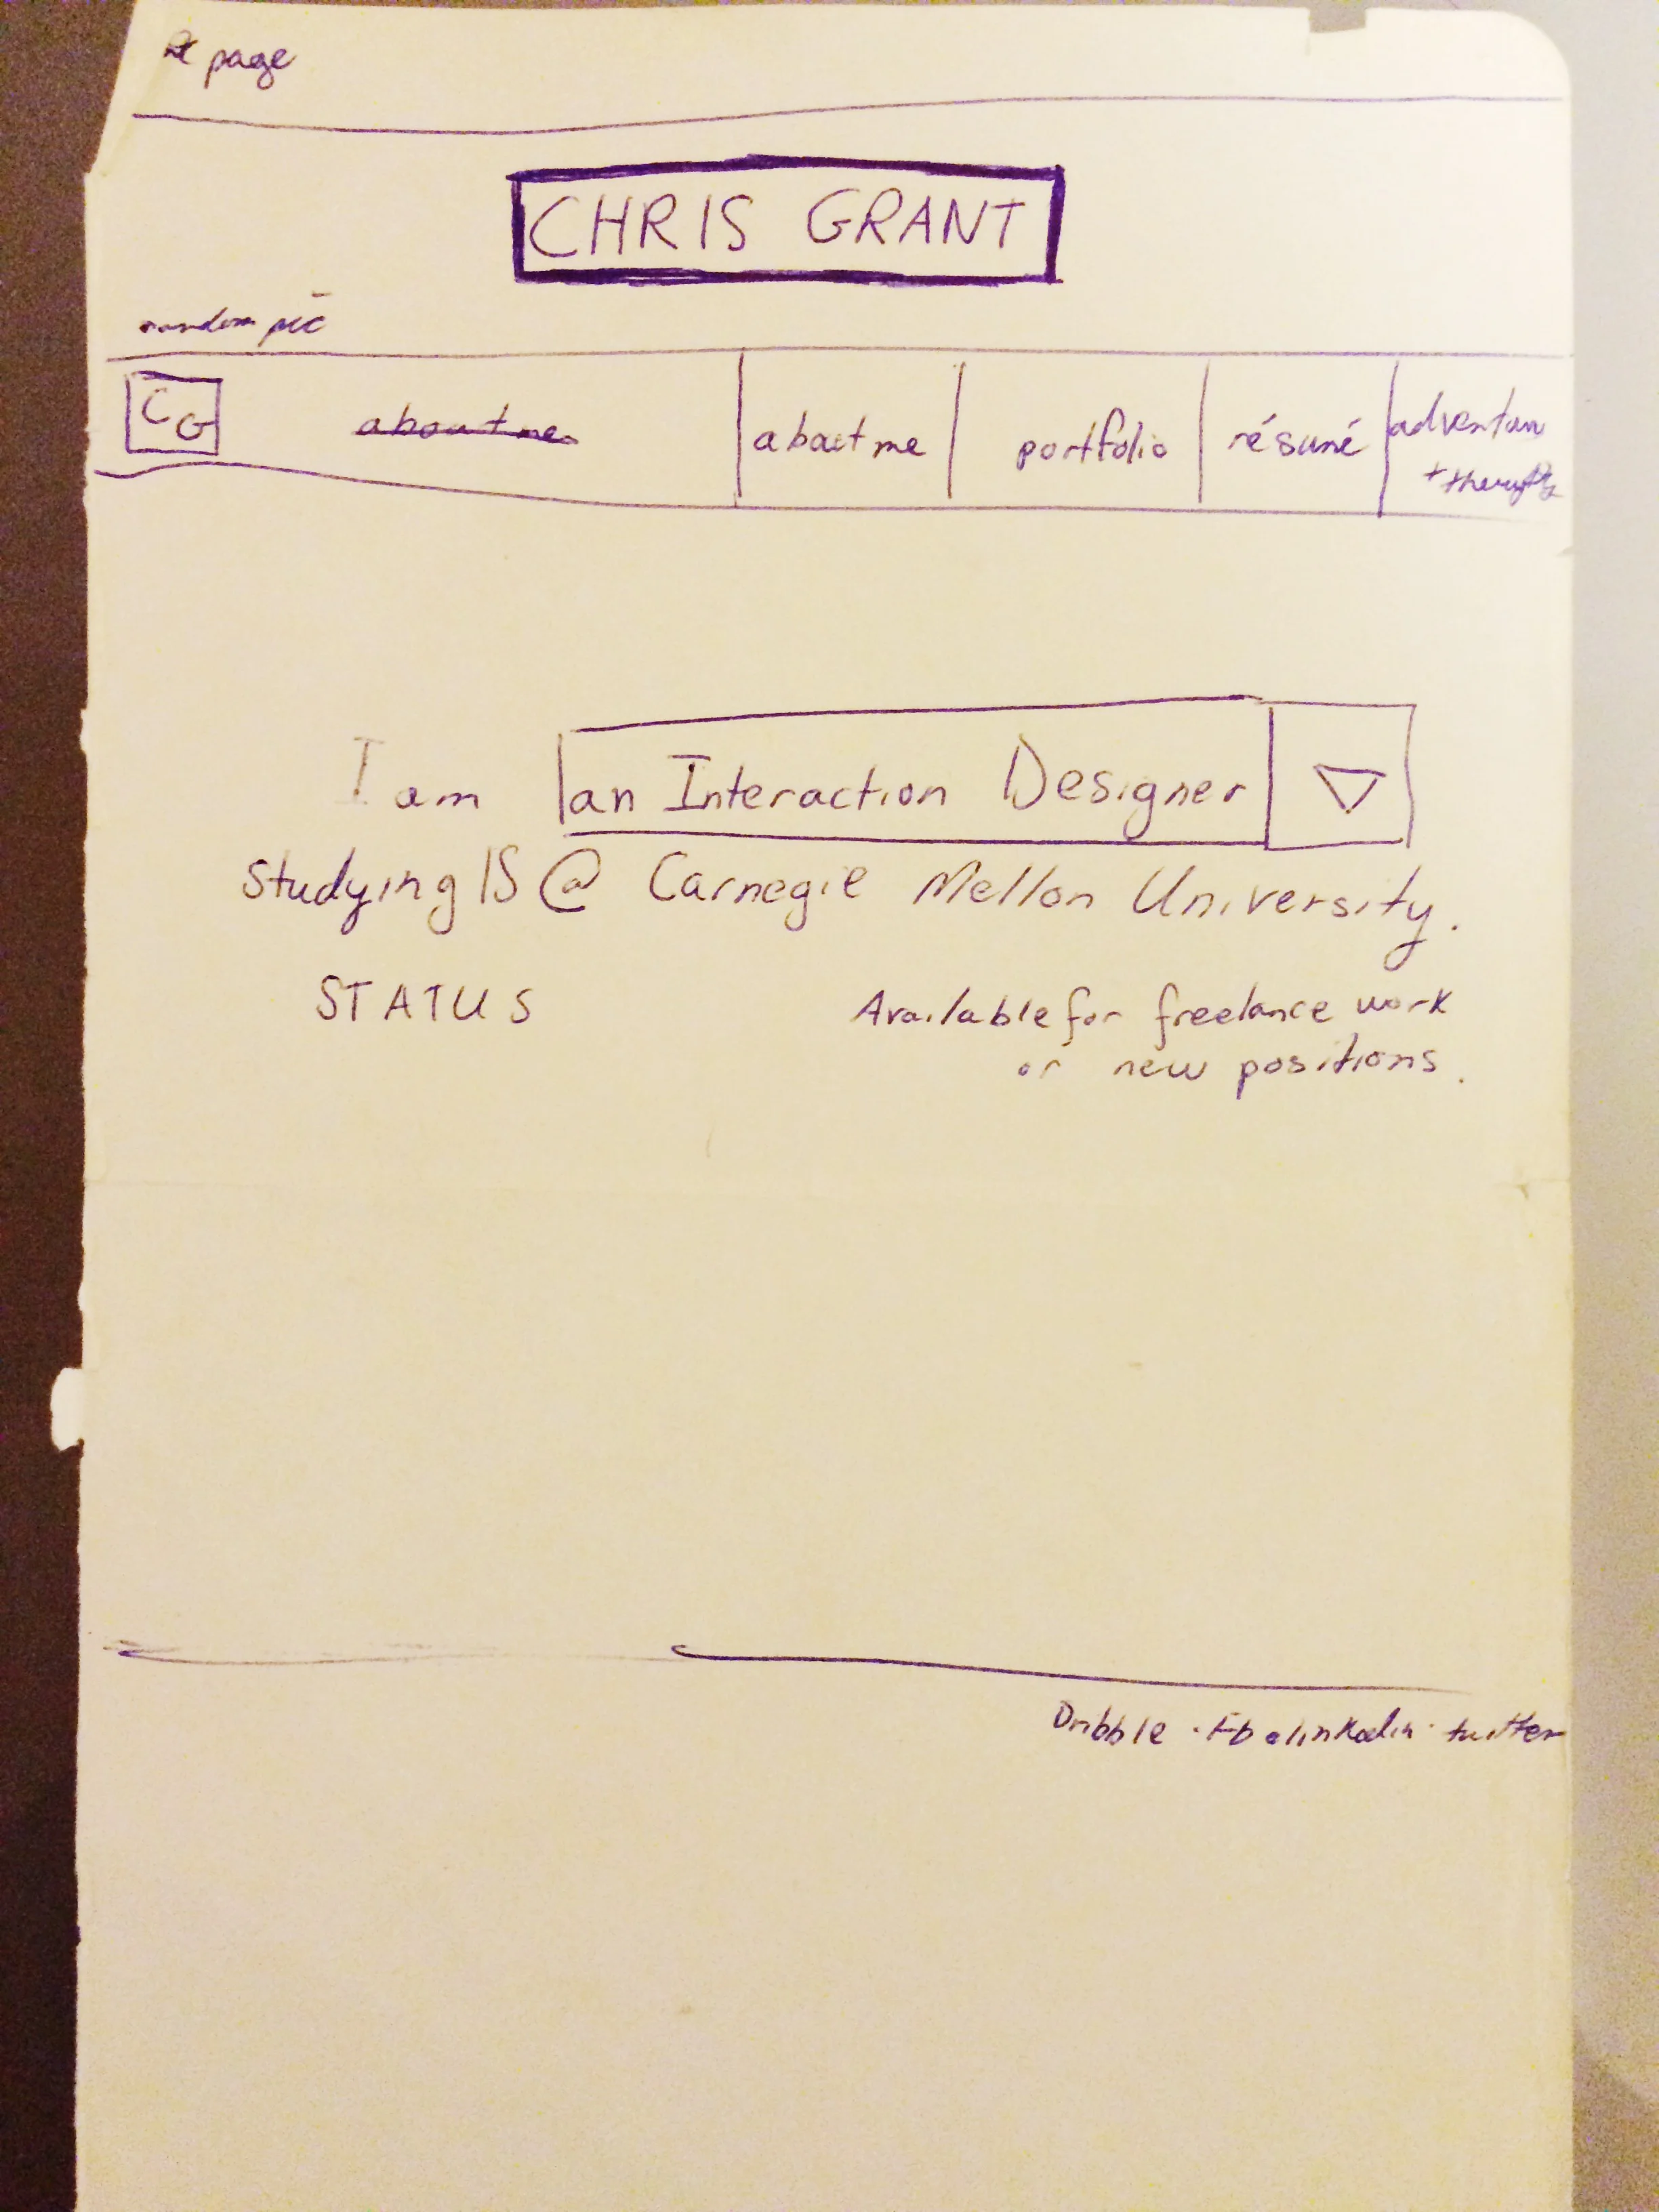 page
CHRIS GRANT
random pic
CG
about me
about me
portfolio
résumé
adventure
+ thoughts
I am an Interaction Designer
Studying IS @ Carnegie Mellon University.
STATUS
Available for freelance work
or new positions.
Dribble · Fb · linkedin · twitter